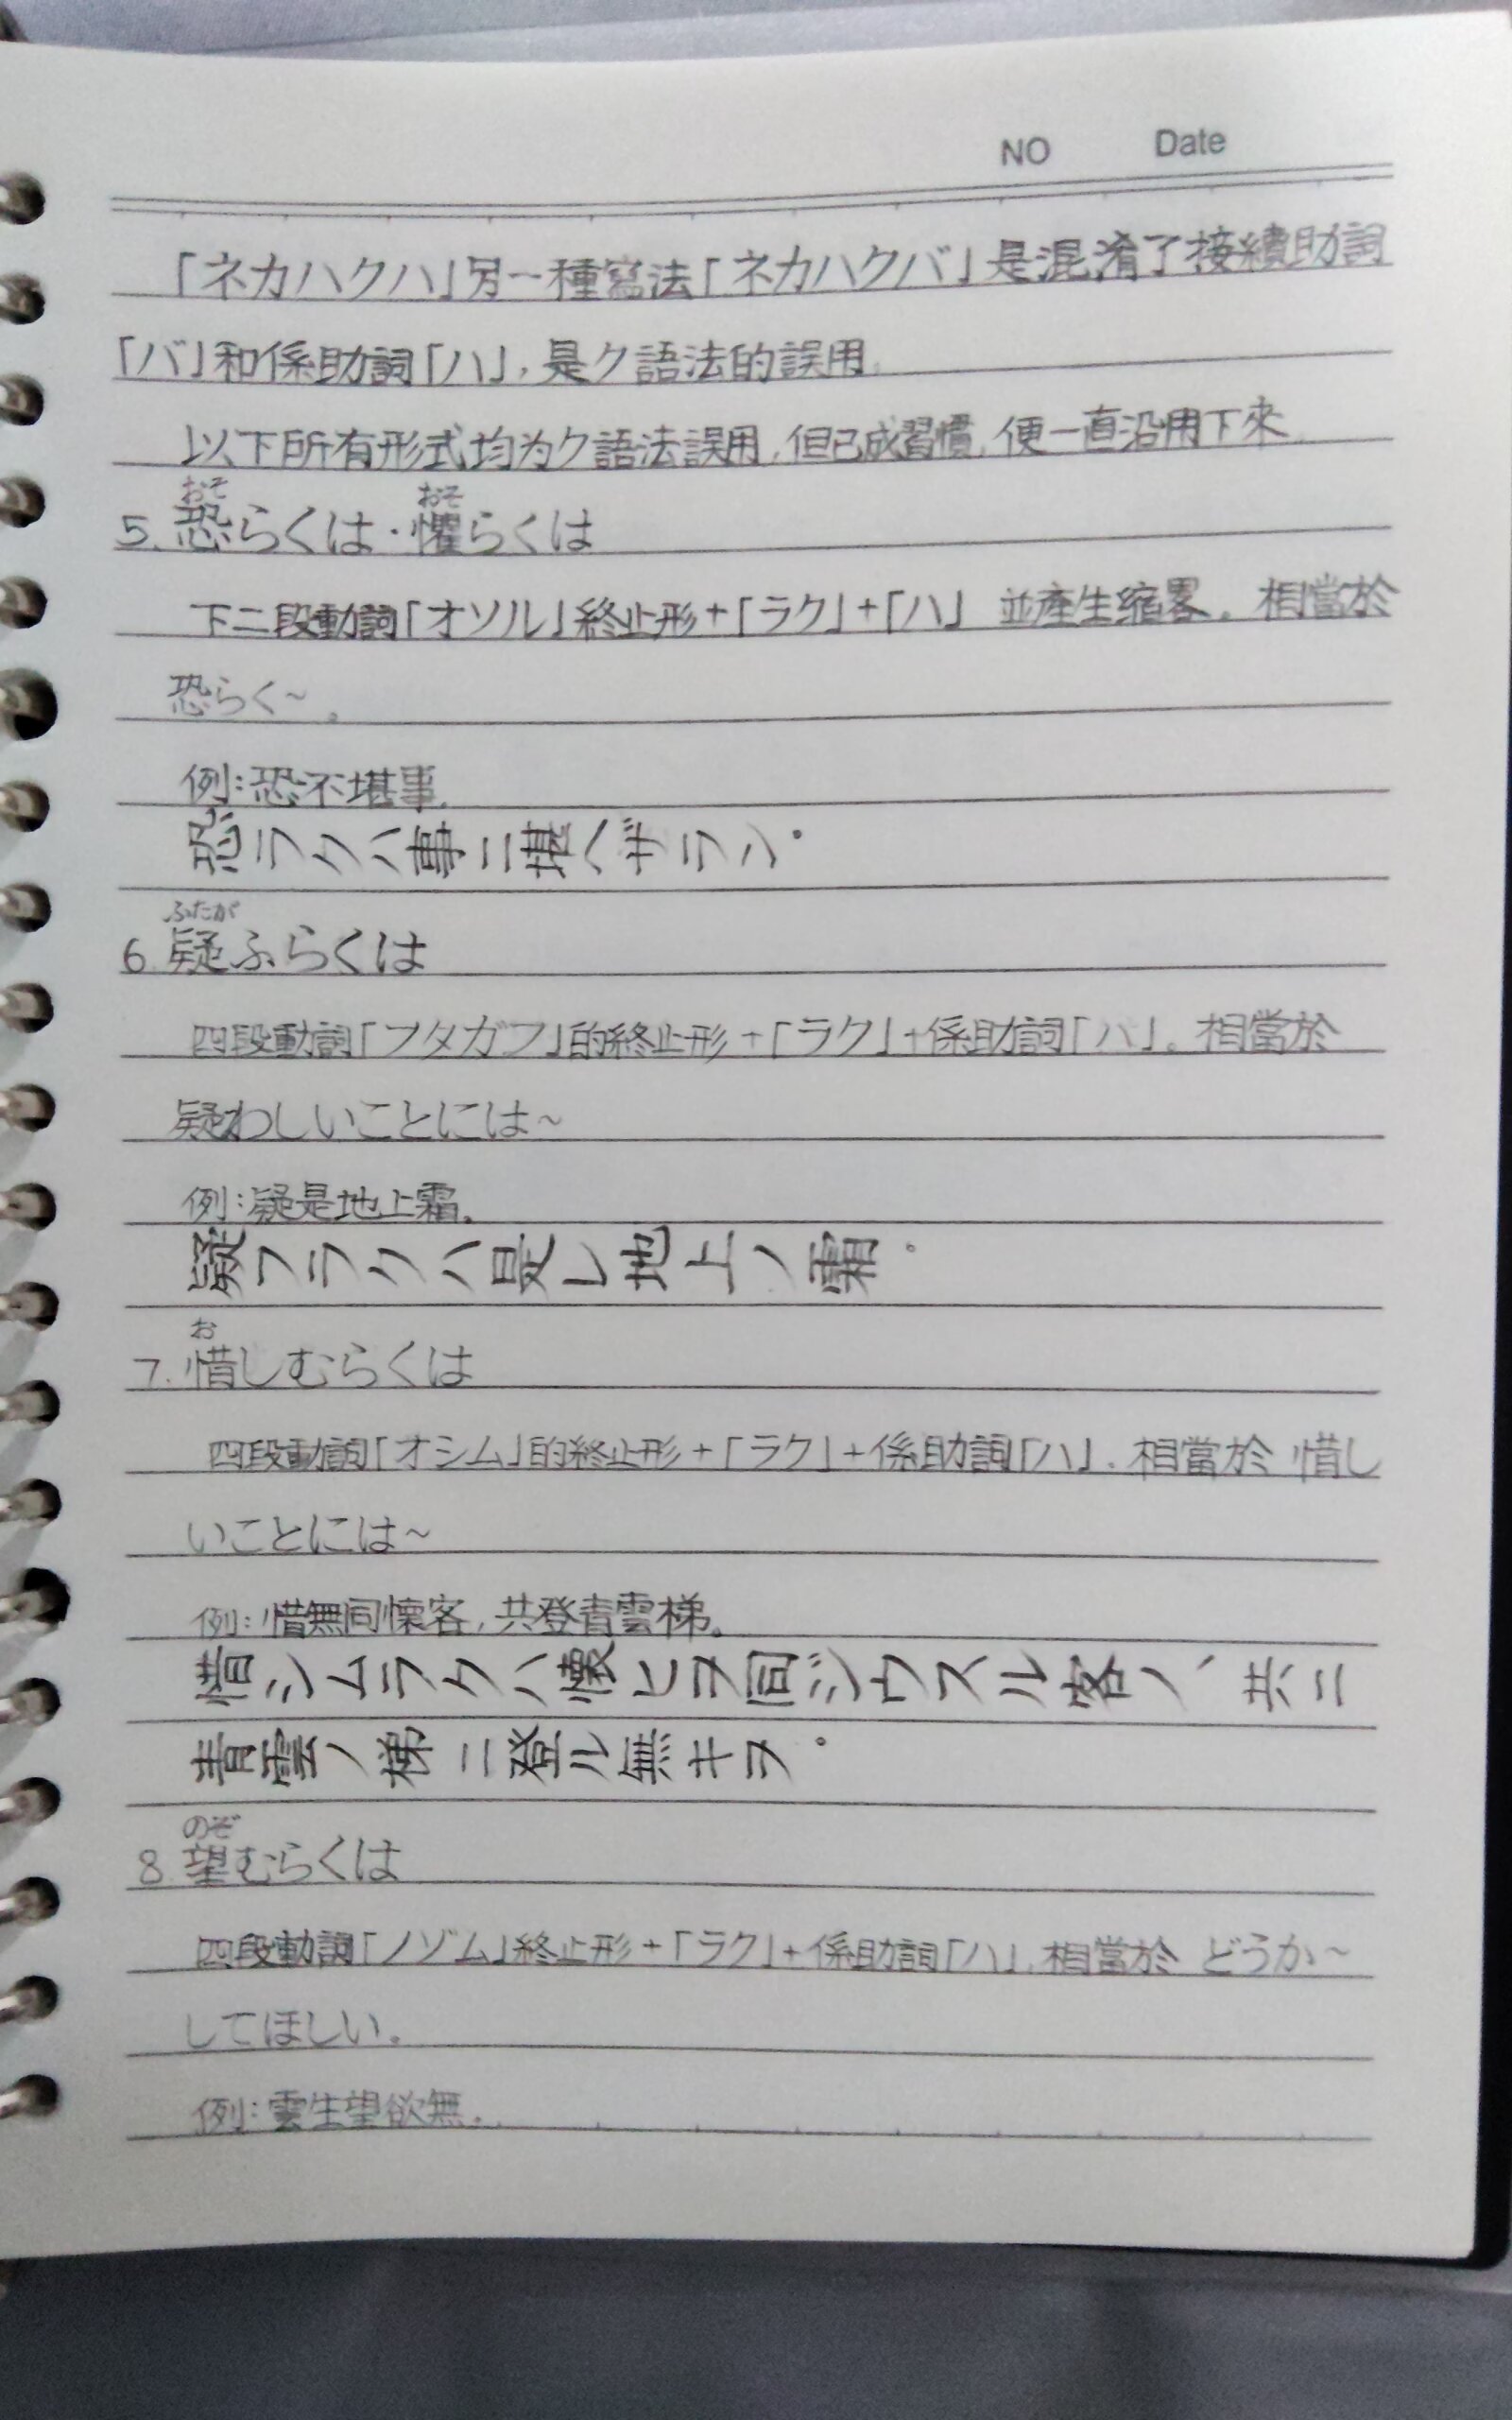 NO Date
「ネカハクハ」另一種寫法「ネカハクバ」是混淆了接續助詞
「バ」和係助詞「ハ」，是ク語法的誤用。
以下所有形式均为ク語法誤用，但已成習慣，便一直沿用下來
おそ おそ
5. 恐らくは・懼らくは
下二段動詞「オソル」終止形+「ラク」+「ハ」 並產生縮畧。相當於
恐らく~。
例：恐不堪事。
恐ラクハ事ニ堪ヘザラン。
ふたが
6. 疑ふらくは
四段動詞「フタガフ」的終止形+「ラク」+係助詞「ハ」。相當於
疑わしいことには~
例：疑是地上霜。
疑フラクハ是レ地上ノ霜。
お
7. 惜しむらくは
四段動詞「オシム」的終止形+「ラク」+係助詞「ハ」．相當於 惜し
いことには~
例：惜無同懷客，共登青雲梯。
惜シムラクハ懐ヒヲ同ジウスル客ノ、共ニ
青雲ノ梯ニ登ル無キヲ。
のぞ
8. 望むらくは
四段動詞「ノゾム」終止形+「ラク」+係助詞「ハ」．相當於 どうか~
してほしい。
例：雲生望欲無．